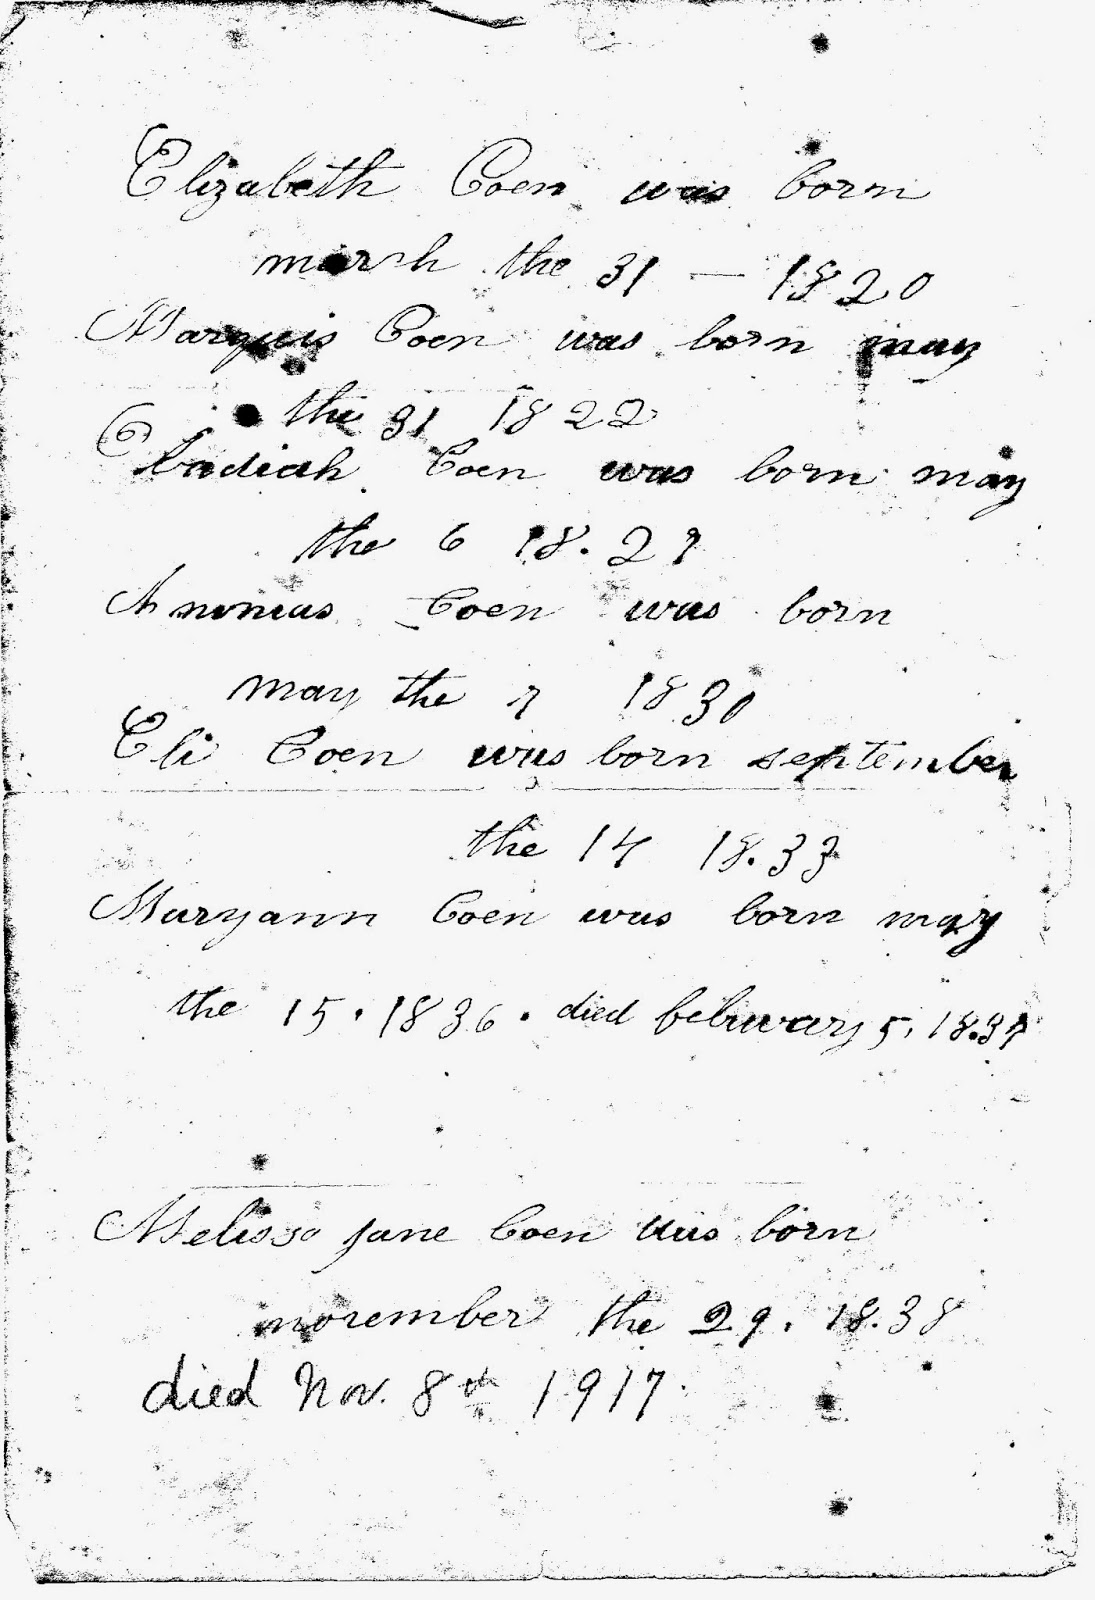 Elizabeth Coen was born
march the 31 — 1820
Marquis Coen was born may
the 31 1822
Obadiah Coen was born may
the 6 18.27
Annanias Coen was born
may the 7 1830
Eli Coen was born september
the 14 18.33
Maryann Coen was born may
the 15. 1836. died february 5, 18.37
Melissa jane Coen was born
november the 29. 18.38
died Nov. 8th 1917.